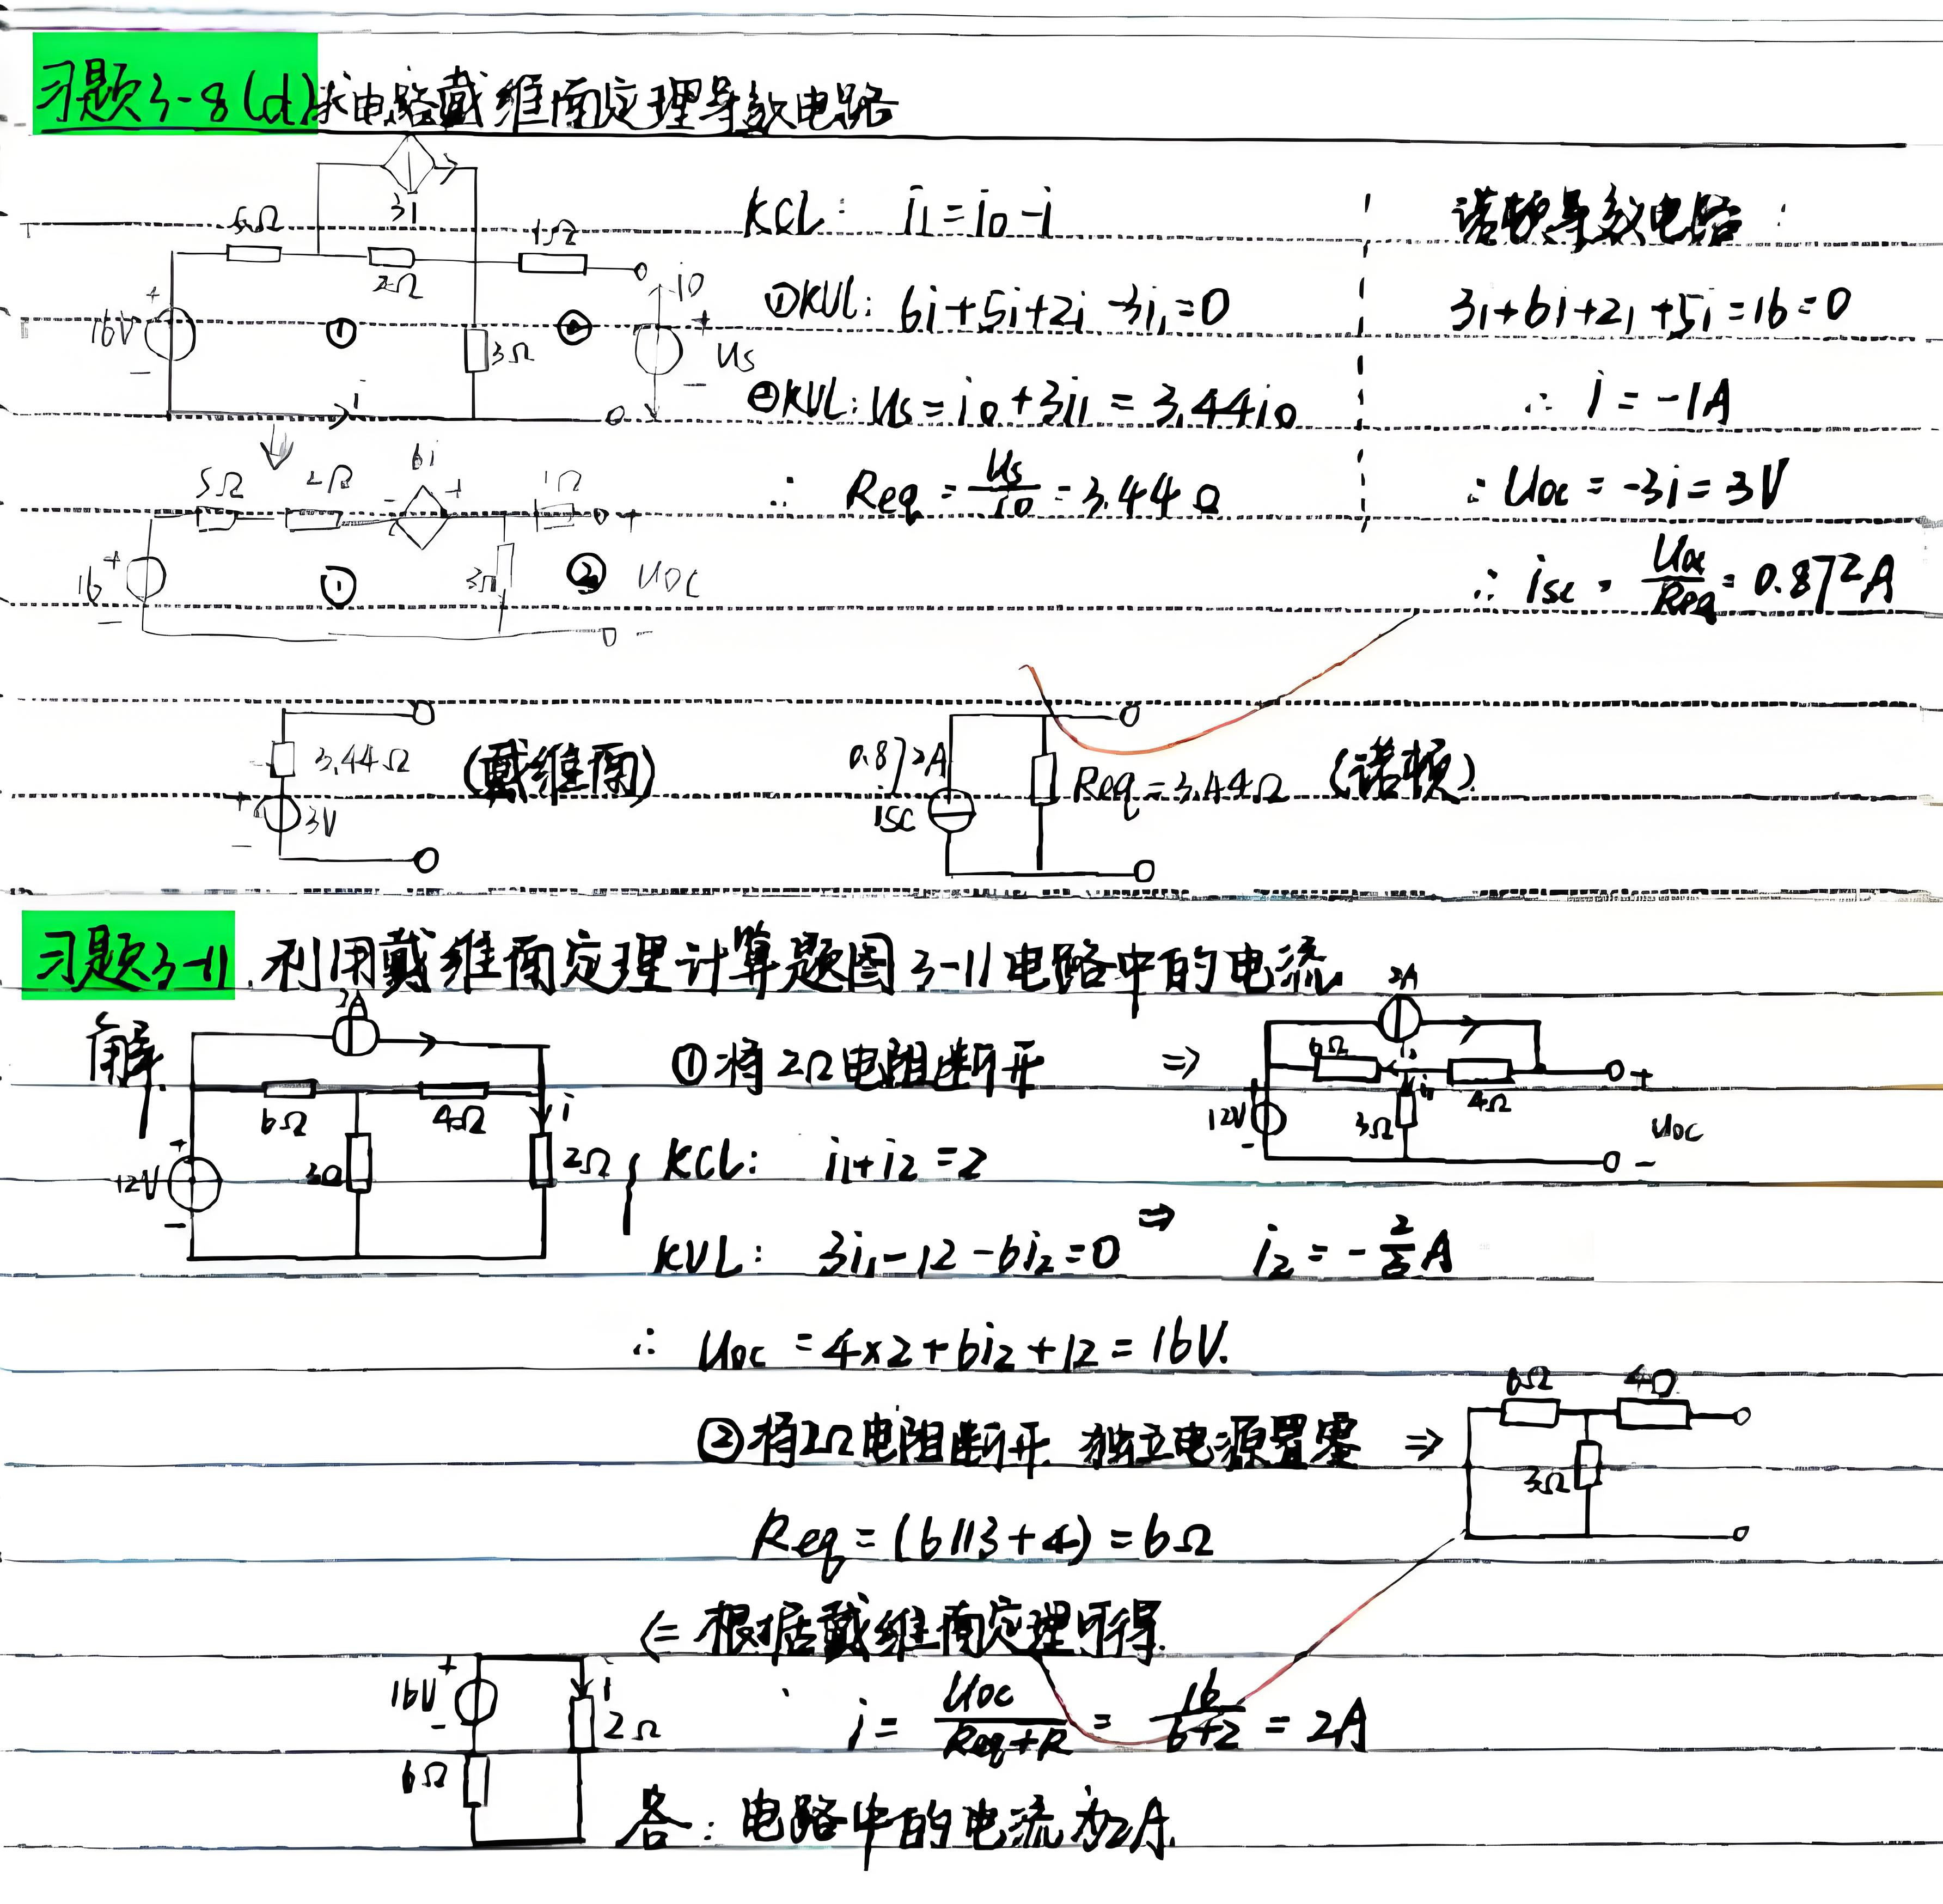 习题3-8(d)求电路戴维南定理等效电路
3i
5Ω
2Ω
1Ω
16V
+
-
①
②
3Ω
i0
+
Us
-
i
KCL: i1=i0-i
①KVL: 6i+5i+2i-3i1=0
②KVL: Us=i0+3i1=3.44i0
∴ Req=Us/i0=3.44Ω
诺顿等效电路:
3i+6i+2i+5i=16=0
∴ i=-1A
∴ Uoc=-3i=3V
∴ isc=Uoc/Req=0.872A
5Ω
2Ω
6i
- +
1Ω
+
16
+
-
①
3Ω
②
UOC
-
3.44Ω
+
3V
-
(戴维南)
0.872A
isc
Req=3.44Ω
(诺顿)
习题3-11.利用戴维南定理计算题图3-11电路中的电流
解
2A
6Ω
4Ω
i
+
12V
-
3Ω
2Ω
①将2Ω电阻断开 ⇒
2A
6Ω
i2
4Ω
+
12V
-
3Ω
i1
Uoc
-
KCL: i1+i2=2
KVL: 3i1-12-6i2=0 ⇒ i2=-2/3A
∴ Uoc=4×2+6i2+12=16V.
②将2Ω电阻断开.独立电源置零 ⇒
6Ω
4Ω
3Ω
Req=(6||3+4)=6Ω
⇐根据戴维南定理可得.
16V
+
-
i
2Ω
6Ω
i=Uoc/(Req+R)=16/(6+2)=2A
答:电路中的电流为2A.